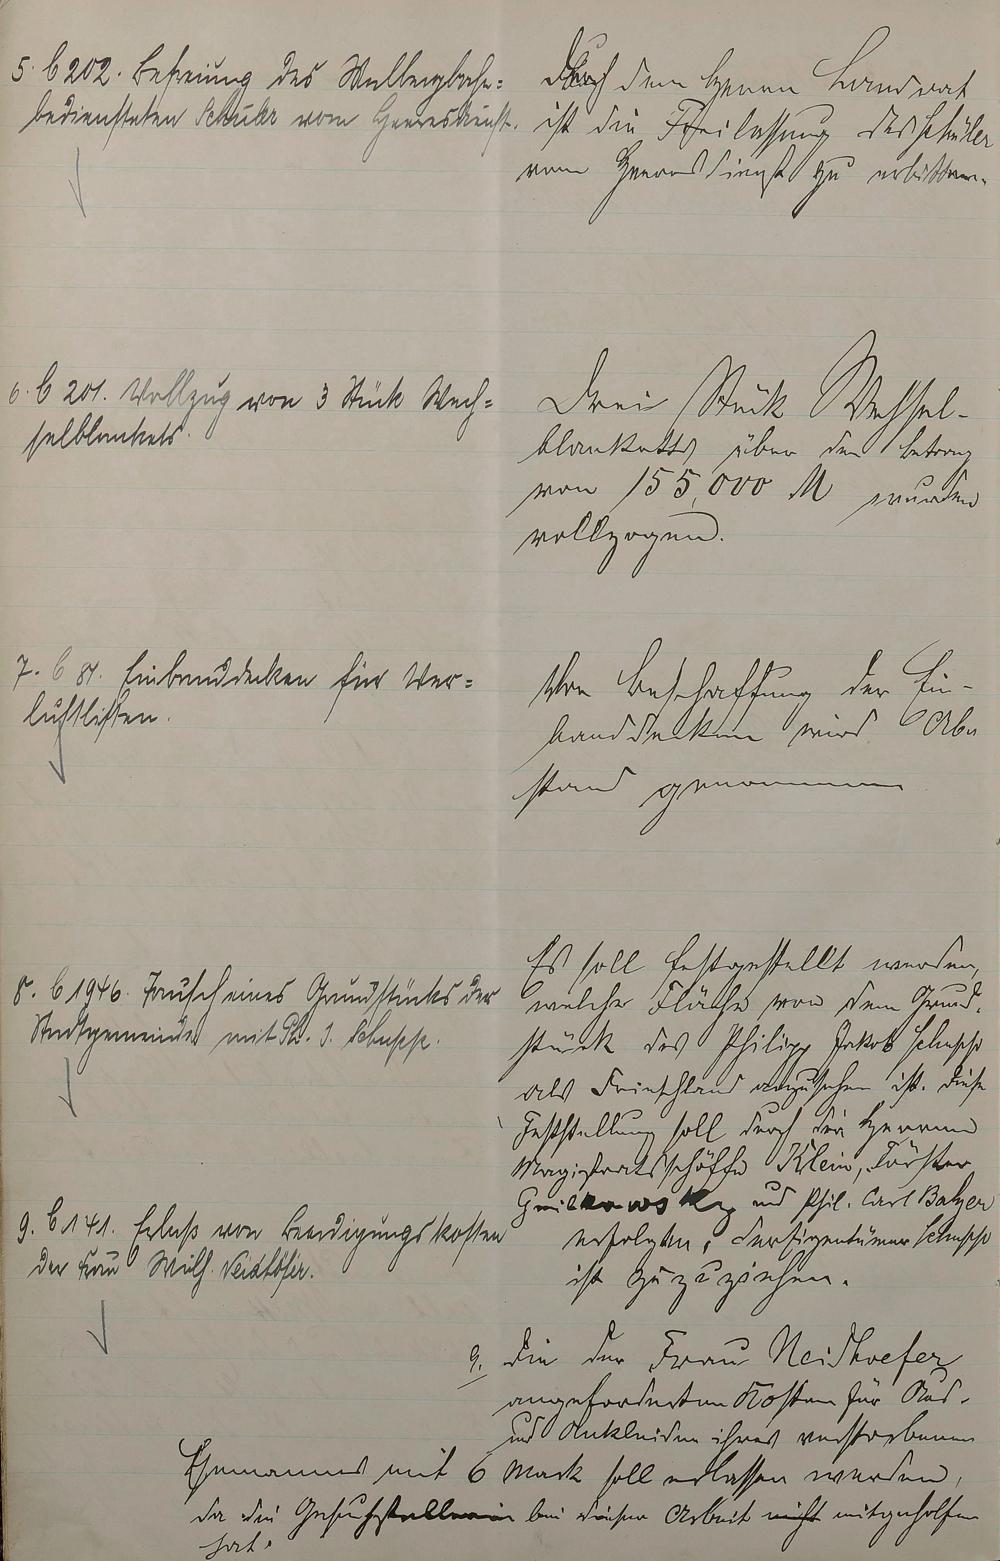 5. C 202. Befreiung des Wellenbade=
bediensteten Schüler vom Heeresdienst.
Durch den Herrn Landrat
ist die Freilassung des Schüler
vom Heeresdienst zu erbitten.
6. C 201. Vollzug von 3 Stück Wech=
selblankets.
Drei Stück Wechsel-
blanketts über den Betrag
von 155,000 M wurden
vollzogen.
7. C 81. Einbanddecken für Ver=
lustlisten.
Von Beschaffung der Ein-
banddecken wird Ab
stand genommen
8. C 1946. Tausch eines Grundstücks der
Stadtgemeinde mit Ph. J. Schupp.
Es soll festgestellt werden,
welche Fläche von dem Grund-
stück des Philipp Jakob Schupp
als Driechland anzusehen ist. Diese
Feststellung soll durch die Herren
Magistratsschöffe Klein, Förster
und Phil. Carl Balzer
erfolgen, der Eigentümer Schupp
ist zuzuziehen.
9. C 141. Erlaß von Beerdigungskosten
der Frau Wilh. Neidhöfer.
9. Die der Frau Neidhoefer
angeforderten Kosten für Aus-
und Ankleiden ihres verstorbenen
Ehemannes mit 6 Mark soll erlassen werden,
da die Gesuchstellerin bei dieser Arbeit nicht mitgeholfen
hat.